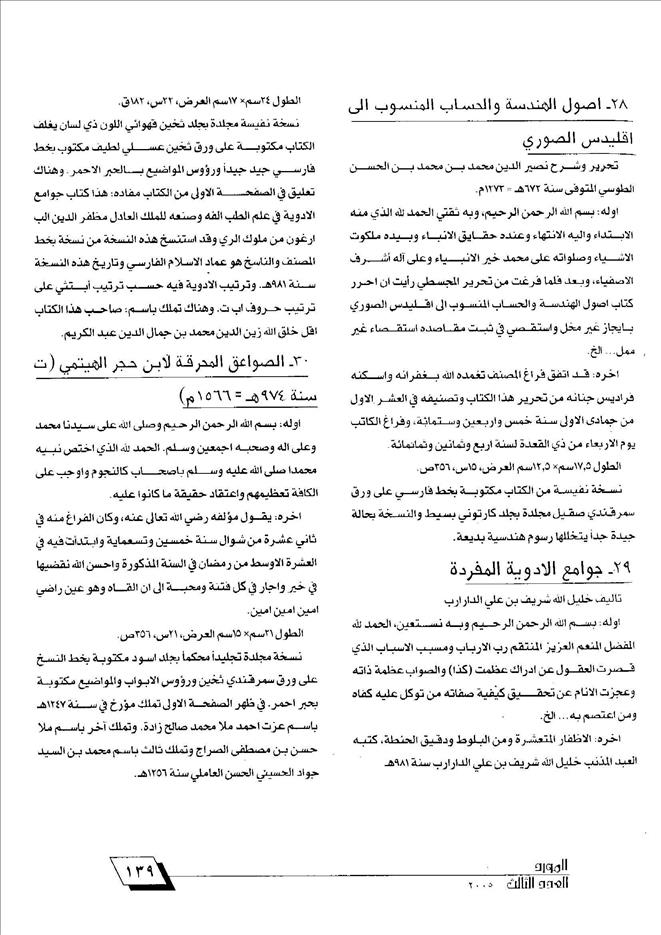 ٢٨ـ اصول الهندسة والحساب المنسوب الى
اقليدس الصوري
تحرير وشرح نصير الدين محمد بن محمد بن الحسن
الطوسي المتوفى سنة ٦٧٢هـ = ١٢٧٣م.
اوله: بسم الله الرحمن الرحيم، وبه ثقتي الحمد لله الذي منه
الابتداء واليه الانتهاء وعنده حقايق الانباء وبيده ملكوت
الاشياء وصلواته على محمد خير الانبياء وعلى آله أشرف
الاصفياء، وبعد فلما فرغت من تحرير المجسطي رأيت ان احرر
كتاب اصول الهندسة والحساب المنسوب الى اقليدس الصوري
بايجاز غير مخل واستقصي في ثبت مقاصده استقصاء غير
ممل... الخ.
اخره: قد اتفق فراغ المصنف تغمده الله بغفرانه واسكنه
فراديس جنانه من تحرير هذا الكتاب وتصنيفه في العشر الاول
من جمادى الاولى سنة خمس واربعين وستمائة، وفراغ الكاتب
يوم الاربعاء من ذي القعدة لسنة اربع وثمانين وثمانمائة.
الطول ١٧,٥سم× ١٢,٥سم العرض، ١٥س، ٣٥٦ص.
نسخة نفيسة من الكتاب مكتوبة بخط فارسي على ورق
سمرقندي صقيل مجلدة بجلد كارتوني بسيط والنسخة بحالة
جيدة جداً يتخللها رسوم هندسية بديعة.
٢٩ـ جوامع الادوية المفردة
تاليف خليل الله شريف بن علي الدارارب
اوله: بسم الله الرحمن الرحيم وبه نستعين، الحمد لله
المفضل المنعم العزيز المنتقم رب الارباب ومسبب الاسباب الذي
قصرت العقول عن ادراك عظمت (كذا) والصواب عظمة ذاته
وعجزت الانام عن تحقيق كيفية صفاته من توكل عليه كفاه
ومن اعتصم به... الخ.
اخره: الاظفار المتعشرة ومن البلوط ودقيق الحنطة، كتبه
العبد المذنب خليل الله شريف بن علي الدارارب سنة ٩٨١هـ
الطول ٢٤سم× ١٧سم العرض، ٢٢س، ١٨٢ق.
نسخة نفيسة مجلدة بجلد ثخين قهوائي اللون ذي لسان يغلف
الكتاب مكتوبة على ورق ثخين عسلي لطيف مكتوب بخط
فارسي جيد جيداً ورؤوس المواضيع بالحبر الاحمر. وهناك
تعليق في الصفحة الاولى من الكتاب مفاده: هذا كتاب جوامع
الادوية في علم الطب الفه وصنعه للملك العادل مظفر الدين الب
ارغون من ملوك الري وقد استنسخ هذه النسخة من نسخة بخط
المصنف والناسخ هو عماد الاسلام الفارسي وتاريخ هذه النسخة
سنة ٩٨١هـ. وترتيب الادوية فيه حسب ترتيب أبتثي على
ترتيب حروف اب ت. وهناك تملك باسم: صاحب هذا الكتاب
اقل خلق الله زين الدين محمد بن جمال الدين عبد الكريم.
٣٠ـ الصواعق المحرقة لابن حجر الهيتمي (ت
سنة ٩٧٤هـ = ١٥٦٦م)
اوله: بسم الله الرحمن الرحيم وصلى الله على سيدنا محمد
وعلى اله وصحبه اجمعين وسلم. الحمد لله الذي اختص نبيه
محمدا صلى الله عليه وسلم باصحاب كالنجوم واوجب على
الكافة تعظيمهم واعتقاد حقيقة ما كانوا عليه.
اخره: يقول مؤلفه رضي الله تعالى عنه، وكان الفراغ منه في
ثاني عشرة من شوال سنة خمسين وتسعماية وابتدأت فيه في
العشرة الاوسط من رمضان في السنة المذكورة واحسن الله نقضيها
في خير واجار في كل فتنة ومحبة الى ان القاه وهو عين راضي
امين امين امين.
الطول ٢١سم× ١٥سم العرض، ٢١س، ٣٥٦ص.
نسخة مجلدة تجليداً محكماً بجلد اسود مكتوبة بخط النسخ
على ورق سمرقندي ثخين ورؤوس الابواب والمواضيع مكتوبة
بحبر احمر. في ظهر الصفحة الاولى تملك مؤرخ في سنة ١٢٤٧هـ
باسم عزت احمد ملا محمد صالح زادة. وتملك آخر باسم ملا
حسن بن مصطفى الصراج وتملك ثالث باسم محمد بن السيد
جواد الحسيني الحسن العاملي سنة ١٢٥٦هـ.
المورد
العدد الثالث ٢٠٠٥
١٣٩